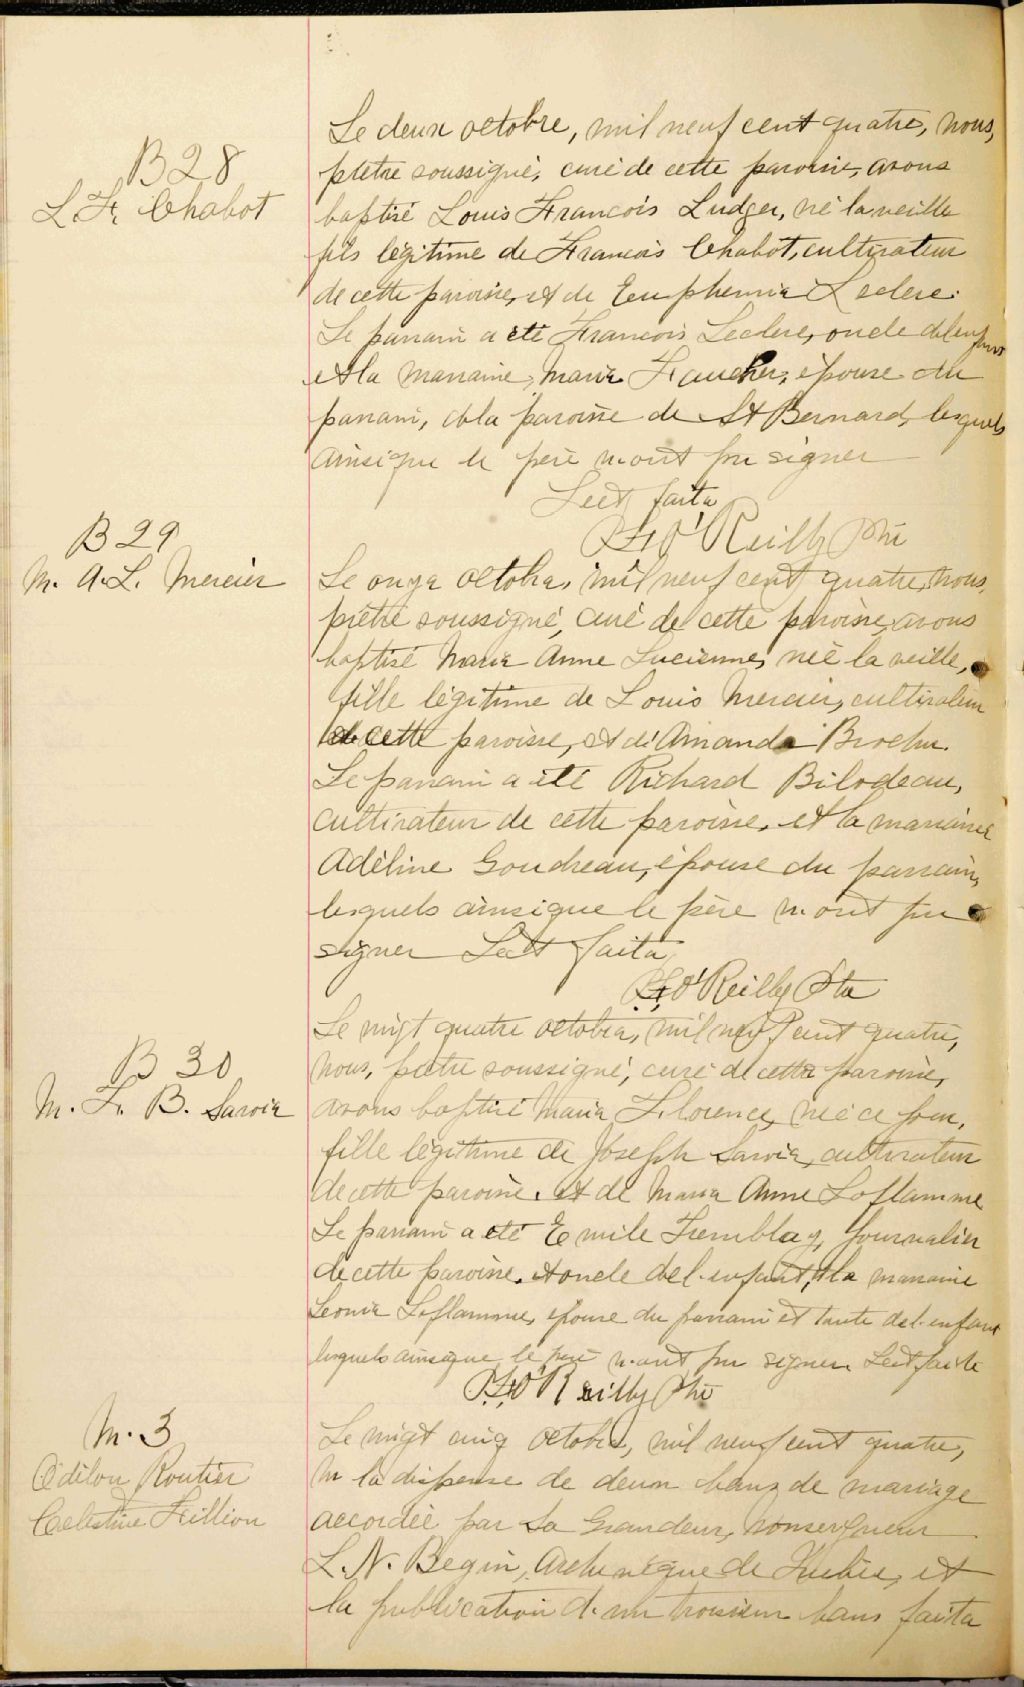 B 28
L. F. Chabot
Le deux octobre, mil neuf cent quatre, nous,
prêtre soussigné, curé de cette paroisse, avons
baptisé Louis François Ludger, né la veille
fils légitime de François Chabot, cultivateur
de cette paroisse, et de Euphemie Leclerc.
Le parrain a été François Leclerc, oncle de l'enfant
et la marraine, Marie Faucher, épouse du
parrain, de la paroisse de St Bernard, lesquels
ainsi que le père n'ont pu signer
Lect. faite
O'Reilly Ptre
B 29
M. A. L. Mercier
Le onze octobre, mil neuf cent quatre, nous,
prêtre soussigné, curé de cette paroisse, avons
baptisé Marie Anne Lucienne, née la veille,
fille légitime de Louis Mercier, cultivateur
de cette paroisse, et de Amanda Brochu.
Le parrain a été Richard Bilodeau,
cultivateur de cette paroisse, et la marraine
Adéline Goudreau, épouse du parrain,
lesquels ainsi que le père n'ont pu
signer Lect faite,
O'Reilly Ptre
B 30
M. F. B. Savoie
Le vingt quatre octobre, mil neuf cent quatre,
nous, prêtre soussigné, curé de cette paroisse,
avons baptisé Marie Florence, née ce jour,
fille légitime de Joseph Savoie, cultivateur
de cette paroisse, et de Marie Anne Laflamme
Le parrain a été Emile Tremblay, journalier
de cette paroisse, et oncle de l'enfant, et la marraine
Leonie Laflamme, épouse du parrain et tante de l'enfant
lesquels ainsi que le père n'ont pu signer. Lect faite
O'Reilly Ptre
M. 3
Odilon Routier
Celestine Fillion
Le vingt cinq octobre, mil neuf cent quatre,
vu la dispense de deux bans de mariage
accordée par Sa Grandeur, Monseigneur
L. N. Begin, Archevêque de Québec, et
la publication d'un troisième bans faite